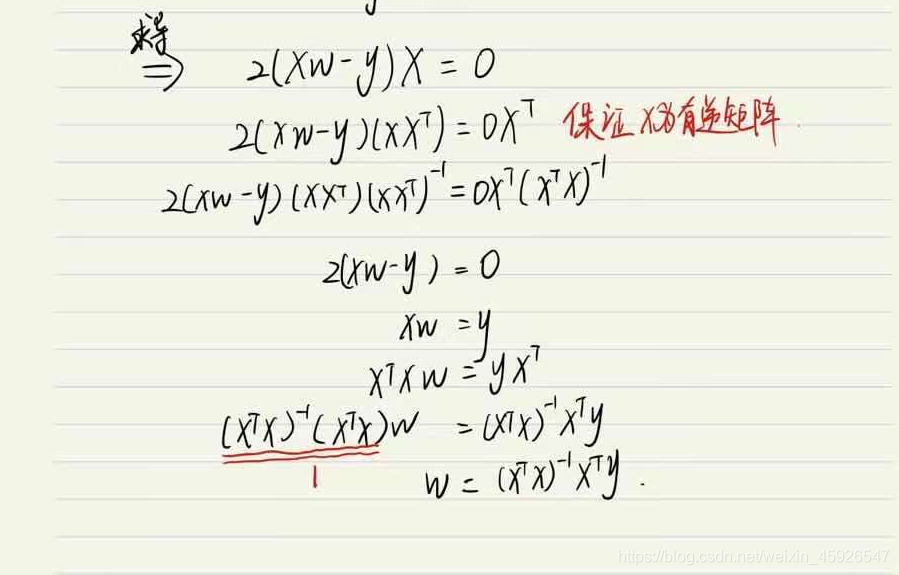 求导
⇒ 2(Xw-y)X = 0
2(Xw-y)(XXᵀ) = 0Xᵀ 保证X为有逆矩阵.
2(Xw-y)(XXᵀ)(XXᵀ)⁻¹ = 0Xᵀ(XᵀX)⁻¹
2(Xw-y) = 0
Xw = y
XᵀXw = yXᵀ
(XᵀX)⁻¹(XᵀX)w = (XᵀX)⁻¹Xᵀy
1
w = (XᵀX)⁻¹Xᵀy.
https://blog.csdn.net/weixin_45926547